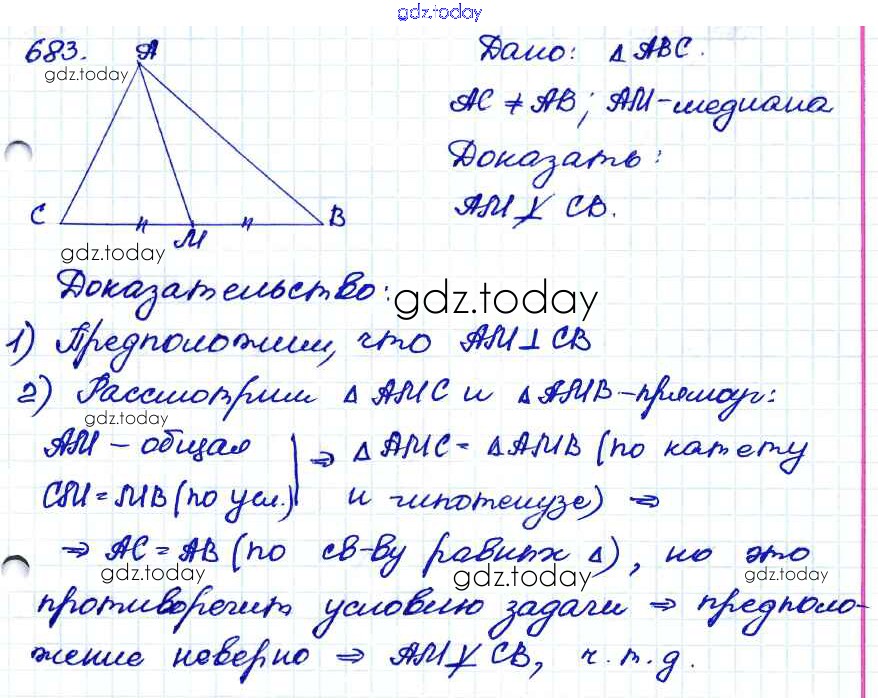 gdz.today
683. A Дано: △ ABC.
gdz.today
AC ≠ AB; AM-медиана
Доказать:
C M B AM ⊥̸ CB.
gdz.today
Доказательство: gdz.today
1) Предположим, что AM ⊥ CB
2) Рассмотрим △ AMC и △ AMB - прямоуг:
gdz.today
AM - общая ⇒ △ AMC = △ AMB (по катету
CM = MB (по усл.) и гипотенузе) ⇒
⇒ AC = AB (по св-ву равных △), но это
gdz.today gdz.today gdz.today
противоречит условию задачи ⇒ предполо-
жение неверно ⇒ AM ⊥̸ CB, ч.т.д.